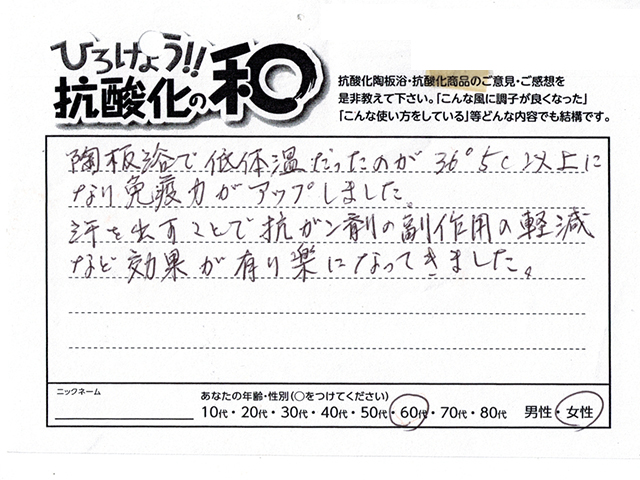 ひろけよう!!
抗酸化の和
抗酸化陶板浴・抗酸化商品のご意見・ご感想を
是非教えて下さい。「こんな風に調子が良くなった」
「こんな使い方をしている」等どんな内容でも結構です。
陶板浴で低体温だったのが36°5C以上に
なり免疫力がアップしました。
汗を出すことで抗ガン剤の副作用の軽減
など効果が有り楽になってきました。
ニックネーム
あなたの年齢・性別(○をつけてください)
10代・20代・30代・40代・50代・60代・70代・80代 男性・女性